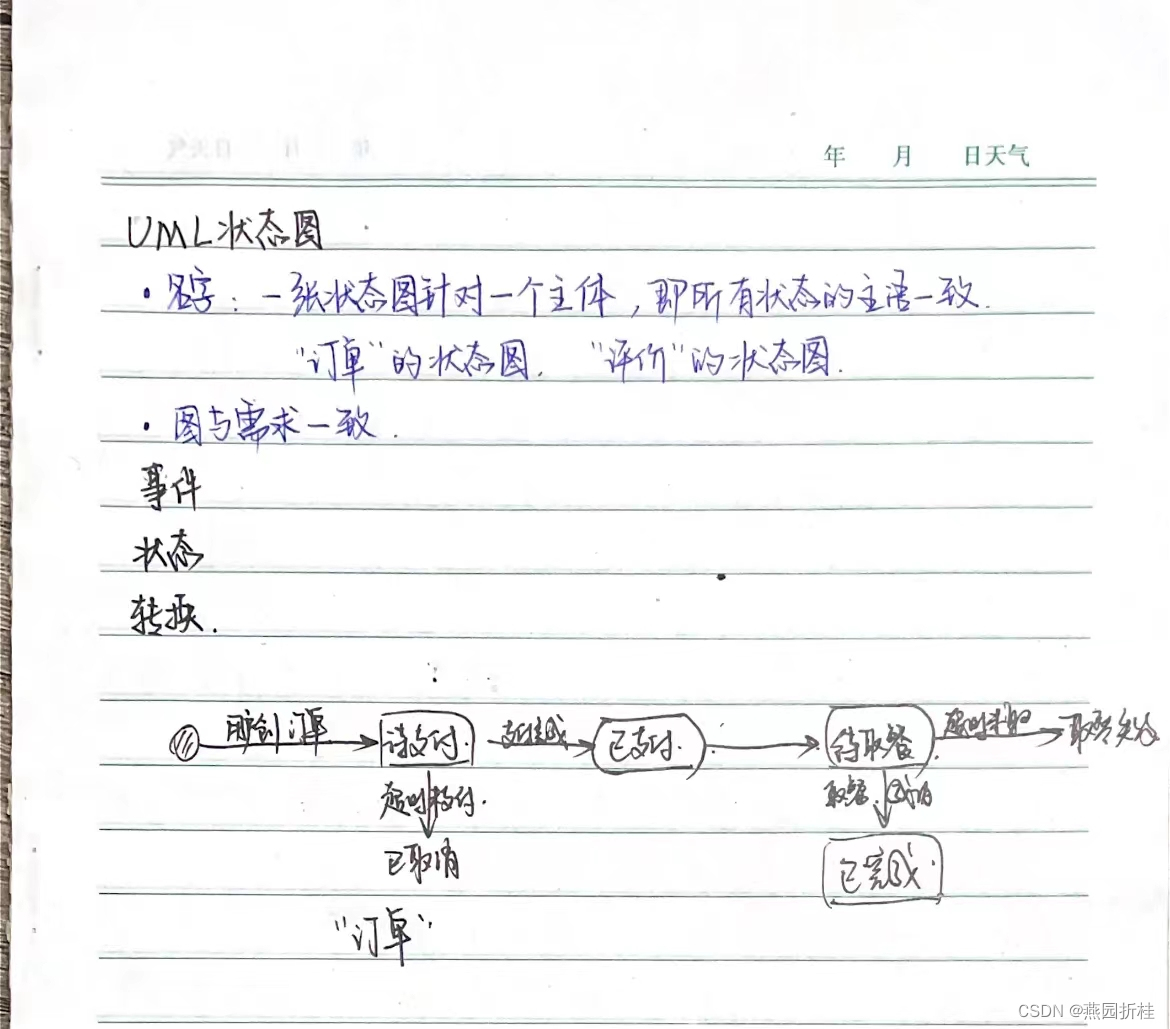 年 月 日天气
UML状态图
· 名字：一张状态图针对一个主体，即所有状态的主语一致．
“订单”的状态图． “评价”的状态图．
· 图与需求一致．
事件
状态
转换．
用户创订单 待支付． 支付完成 已支付． 待取餐 超时未取 取餐失败
超时未付． 取餐成功
已取消 已完成
“订单”
CSDN @燕园折桂